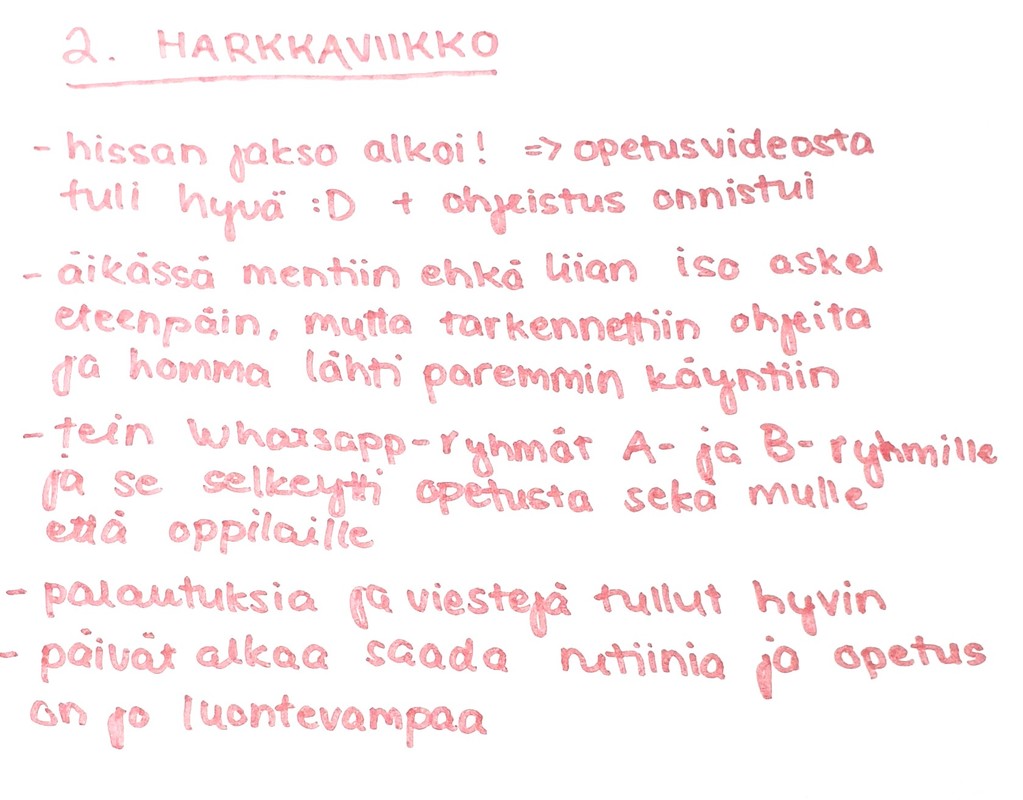 2. HARKKAVIIKKO
- hissan jakso alkoi! => opetusvideosta
tuli hyvä :D + ohjeistus onnistui
- äikässä mentiin ehkä liian iso askel
eteenpäin, mutta tarkennettiin ohjeita
ja homma lähti paremmin käyntiin
- tein whatsapp-ryhmät A- ja B-ryhmille
ja se selkeytti opetusta sekä mulle
että oppilaille
- palautuksia ja viestejä tullut hyvin
- päivät alkaa saada rutiinia ja opetus
on jo luontevampaa